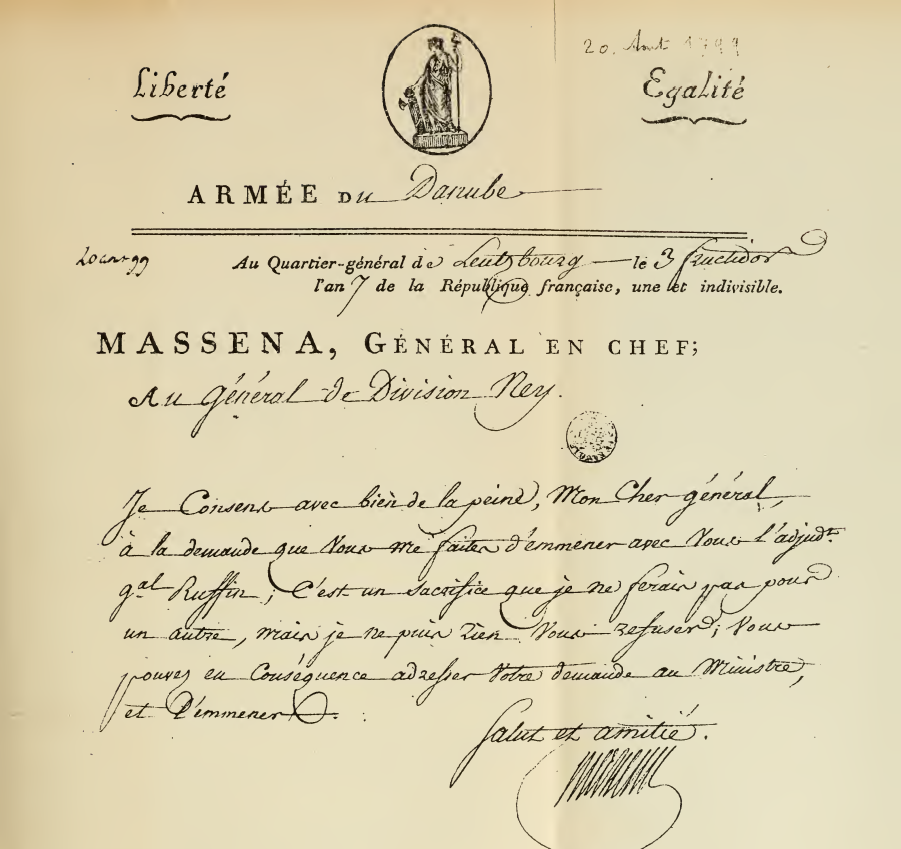 20. Aout 1799
Liberté Egalité
ARMÉE DU Danube
20 aout 99
Au Quartier-général de Lentzbourg le 3 fructidor
l'an 7 de la République française, une et indivisible.
MASSENA, GÉNÉRAL EN CHEF;
Au Général de Division Ney.
Je Consens avec bien de la peine, Mon Cher général,
à la demande que Vous me faites d'emmener avec Vous l'adjud.t
g.al Ruffin; C'est un sacrifice que je ne ferais pas pour
un autre, mais je ne puis rien Vous refuser; Vous
pouvez en Conséquence adresser Votre demande au Ministre,
et L'emmener.
Salut et amitié.
Massena